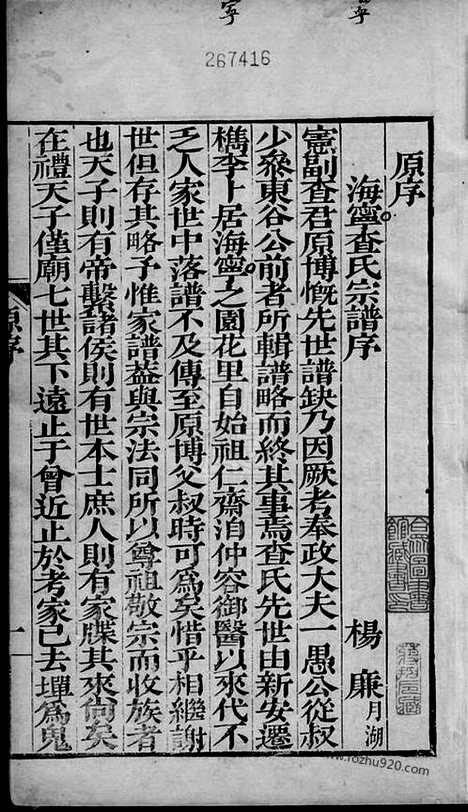 寧
寧
267416
原序
海寧查氏宗譜序
楊廉月湖
憲副查君原博慨先世譜缺乃因厥考奉政大夫一愚公從叔
少參東谷公前者所輯譜略而終其事焉查氏先世由新安遷
檇李卜居海寧之園花里自始祖仁齋洎仲容御醫以來代不
乏人家世中落譜不及傳至原博父叔時可為矣惜乎相繼謝
世但存其略予惟家譜蓋與宗法同所以尊祖敬宗而收族者
也天子則有帝繫諸侯則有世本士庶人則有家牒其來尙矣
在禮天子僅廟七世其下遠止于曾近止於考家已去墠為鬼
原序
一
www.fozhu920.com